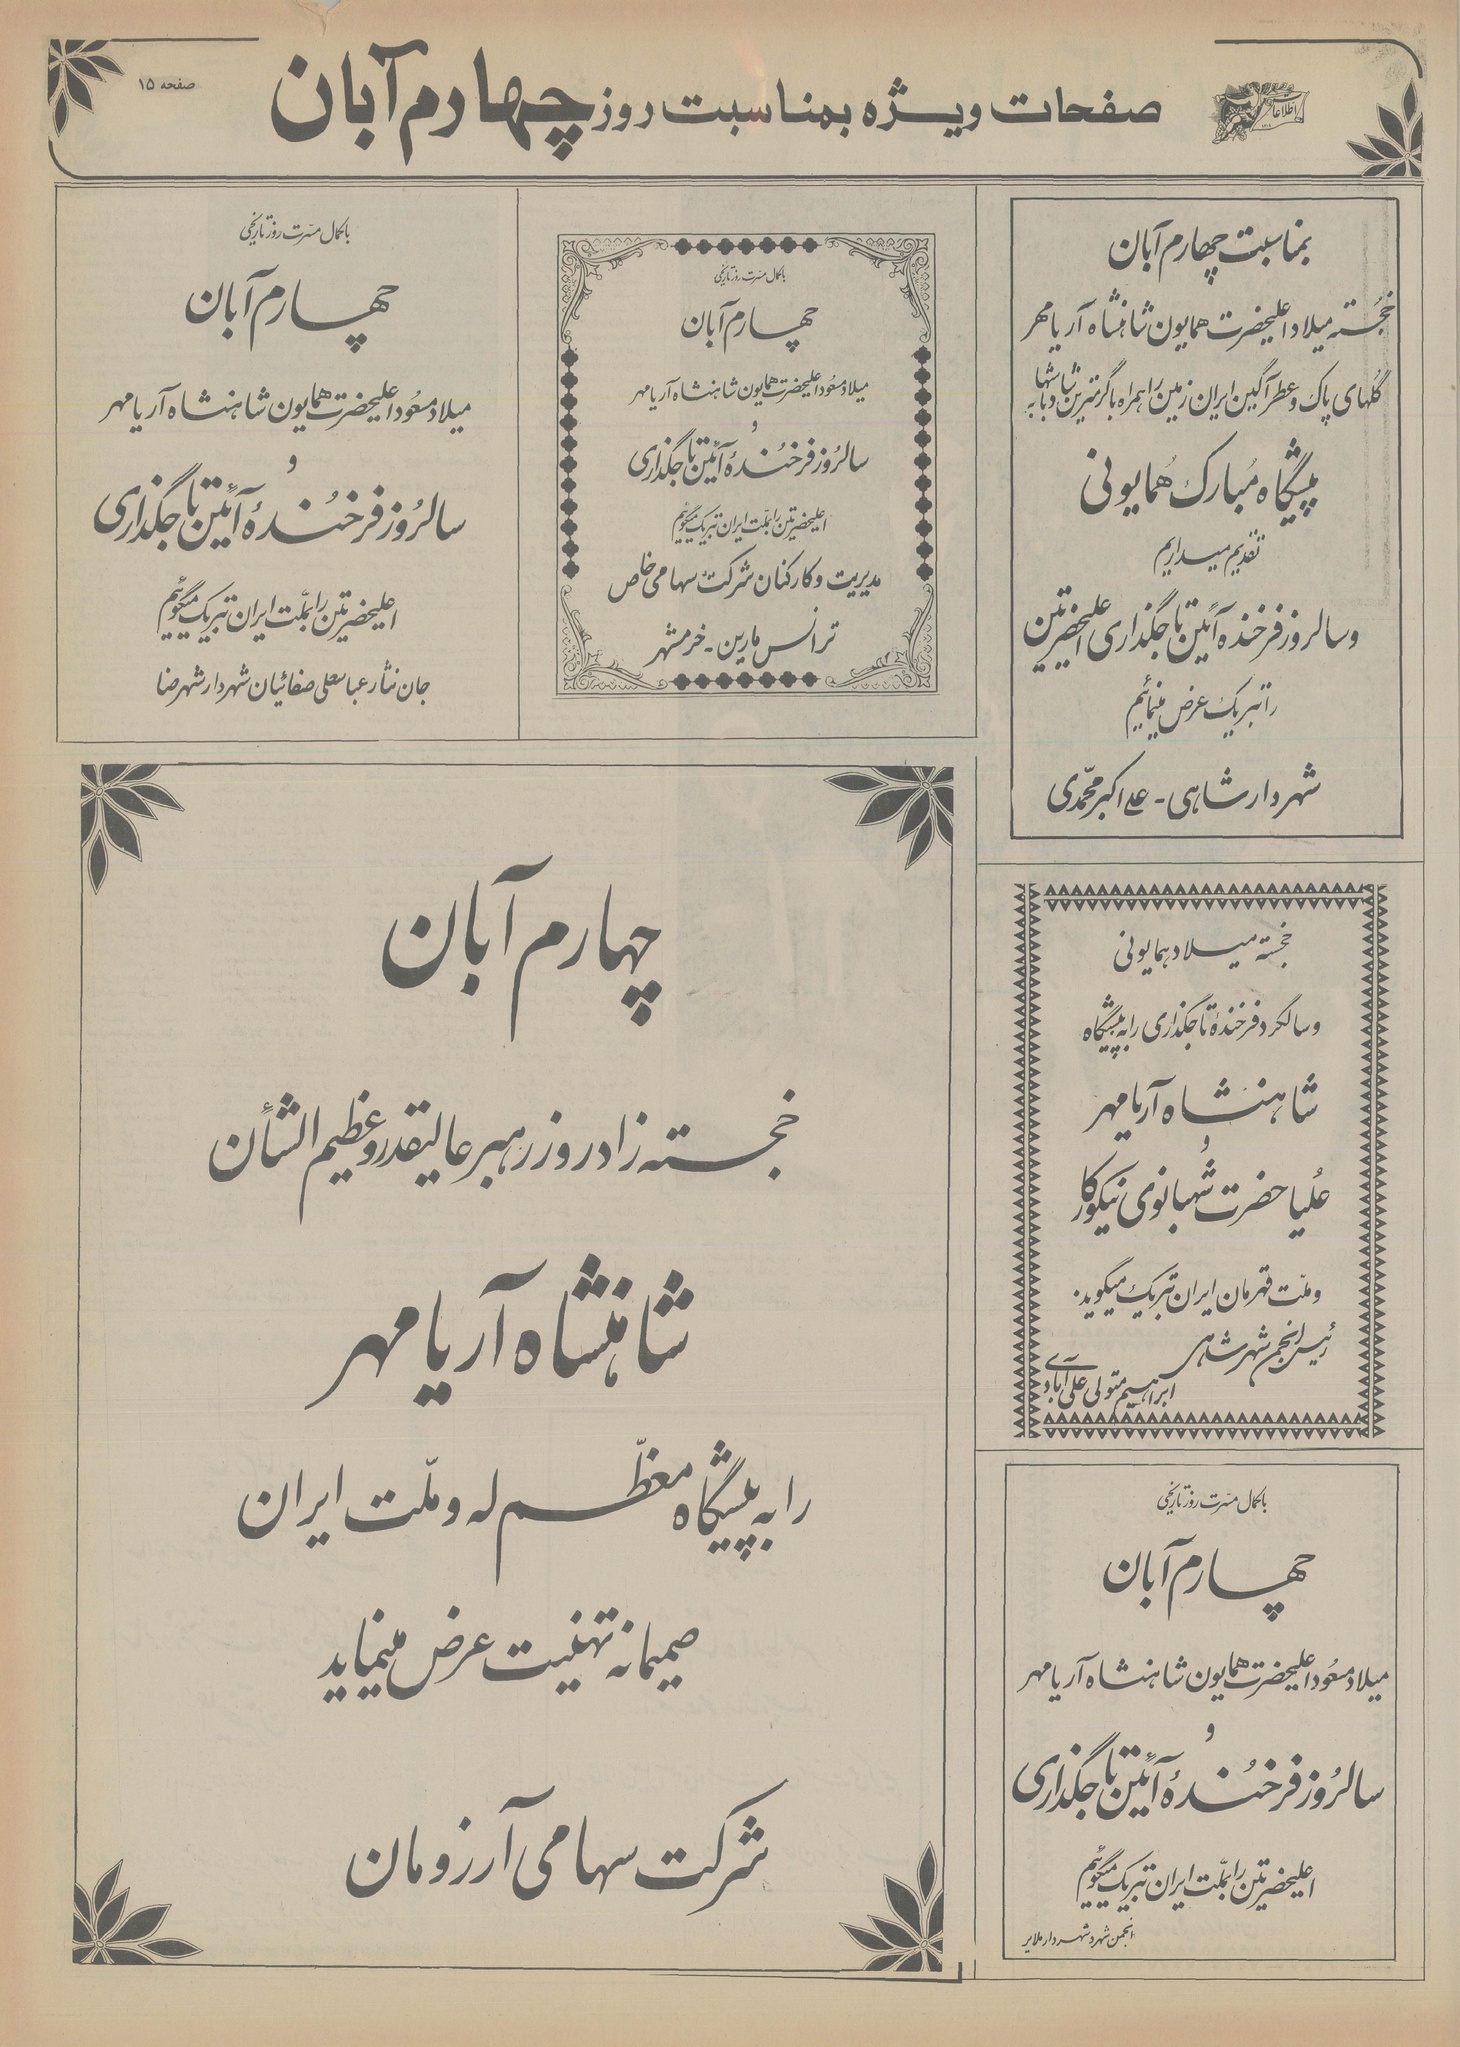 صفحات ویژه بمناسبت روز چهارم آبان
اطلاعات
صفحه ۱۵
بمناسبت چهارم آبان
خجسته میلاد اعلیحضرت همایون شاهنشاه آریامهر
گلهای پاک و عطرآگین ایران زمین را همراه با گرمترین شاباشها به
پیشگاه مبارک همایونی
تقدیم میداریم
و سالروز فرخنده آئین تاجگذاری اعلیحضرتین
را تبریک عرض مینمائیم
شهردار شاهی - علی اکبر محمدی
باکمال مسرت روز تاریخی
چهارم آبان
میلاد مسعود اعلیحضرت همایون شاهنشاه آریامهر
و
سالروز فرخندهٔ آئین تاجگذاری
اعلیحضرتین را بملت ایران تبریک میگوئیم
مدیریت و کارکنان شرکت سهامی خاص
ترانس مارین - خرمشهر
باکمال مسرت روز تاریخی
چهارم آبان
میلاد مسعود اعلیحضرت همایون شاهنشاه آریامهر
و
سالروز فرخندهٔ آئین تاجگذاری
اعلیحضرتین را بملت ایران تبریک میگوئیم
جان نثار عباسعلی صفائیان شهردار شهرضا
خجسته میلاد همایونی
و سالگرد فرخندهٔ تاجگذاری را به پیشگاه
شاهنشاه آریامهر
و
علیاحضرت شهبانوی نیکوکار
و ملت قهرمان ایران تبریک میگوید.
رئیس انجمن شهر شاهی
ابراهیم متولی علی آبادی
چهارم آبان
خجسته زادروز رهبر عالیقدر و عظیم الشأن
شاهنشاه آریامهر
را به پیشگاه معظم له و ملت ایران
صمیمانه تهنیت عرض مینماید
شرکت سهامی آرزومان
باکمال مسرت روز تاریخی
چهارم آبان
میلاد مسعود اعلیحضرت همایون شاهنشاه آریامهر
و
سالروز فرخندهٔ آئین تاجگذاری
اعلیحضرتین را بملت ایران تبریک میگوئیم
انجمن شهر و شهردار ملایر